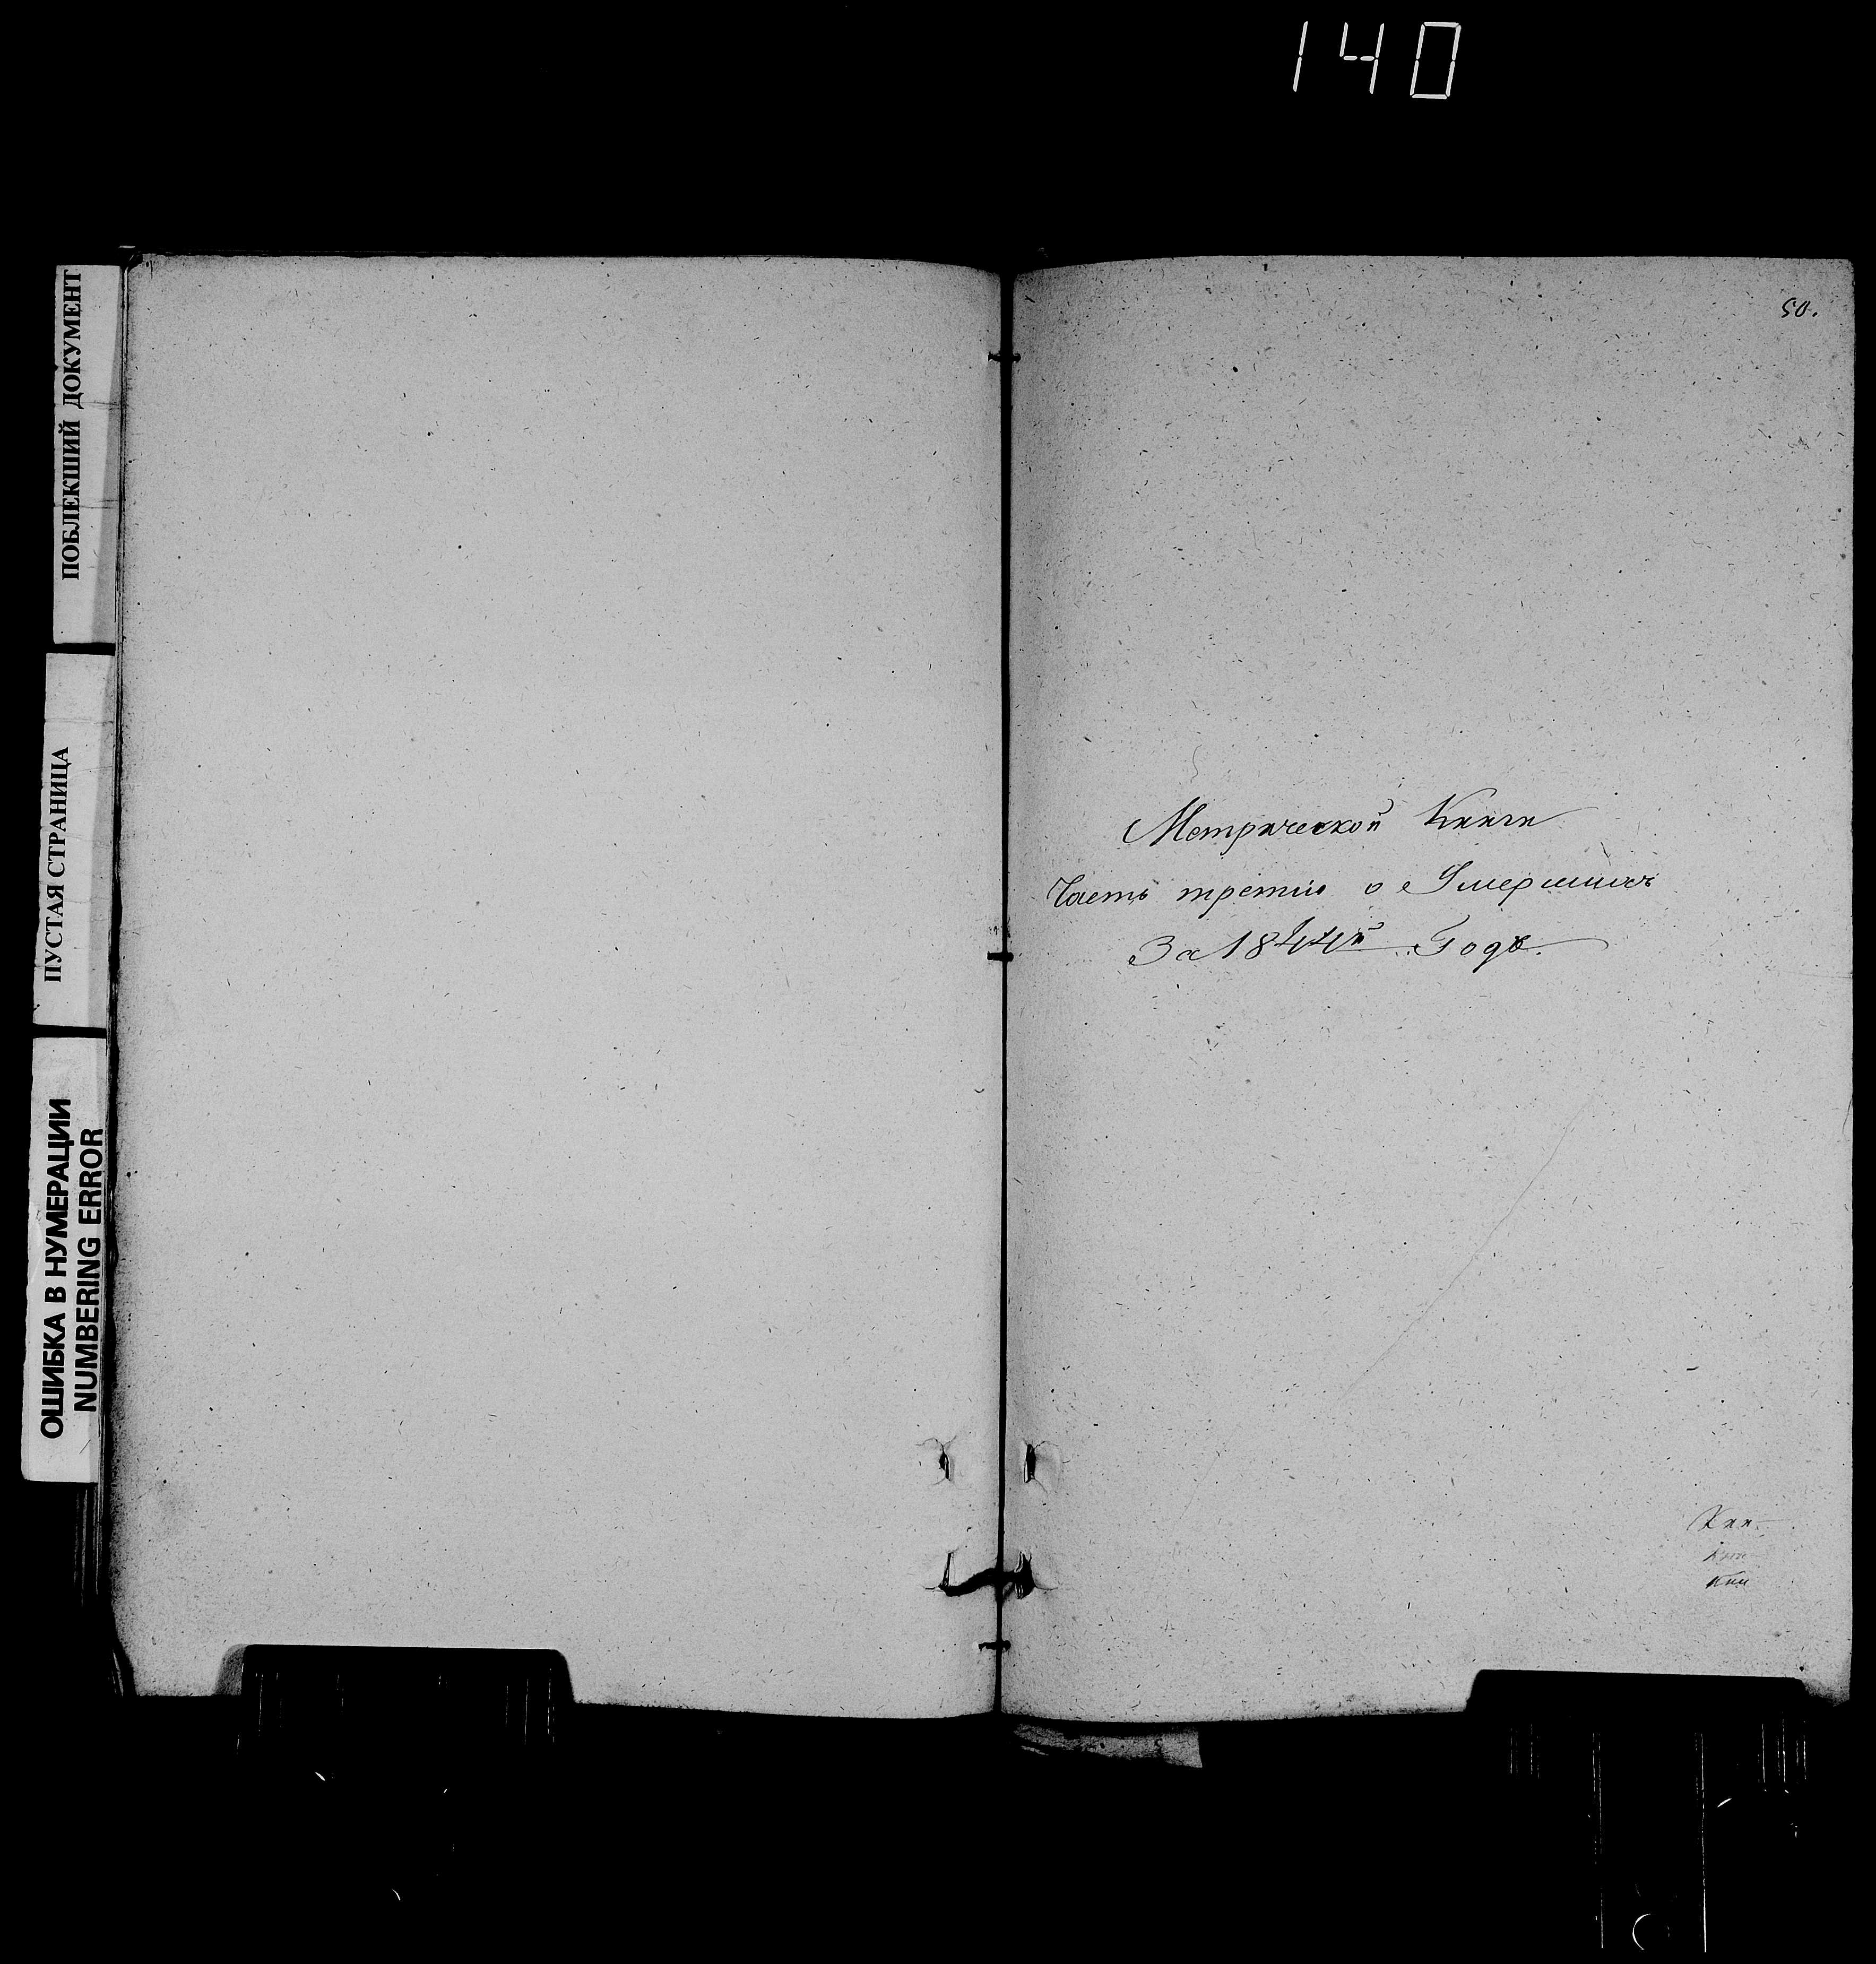 140
ПОБЛЕКШИЙ ДОКУМЕНТ
ПУСТАЯ СТРАНИЦА
ОШИБКА В НУМЕРАЦИИ
NUMBERING ERROR
50.
Метрической Книги
Часть третию о Умершихъ
За 1844й Годъ.
Кни